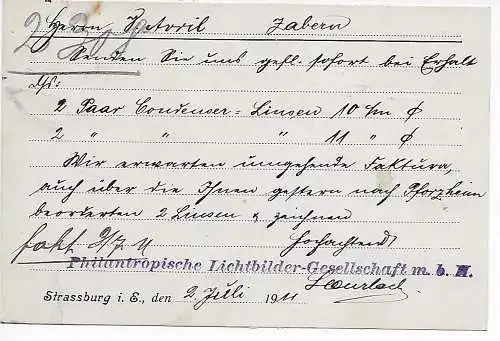 Herrn Zabern
Senden Sie uns gefl. sofort bei Erhalt
ds:
2 Paar Condenser-Linsen 10 c/m ϕ
2 " " " 11 " ϕ
Wir erwarten umgehende Faktura,
auch über die Ihnen gestern nach Pforzheim
beorderten 2 Linsen & zeichnen
fakt 3/7 11 hochachtend
Philantropische Lichtbilder-Gesellschaft m. b. H.
Strassburg i. E., den 2 Juli 1911